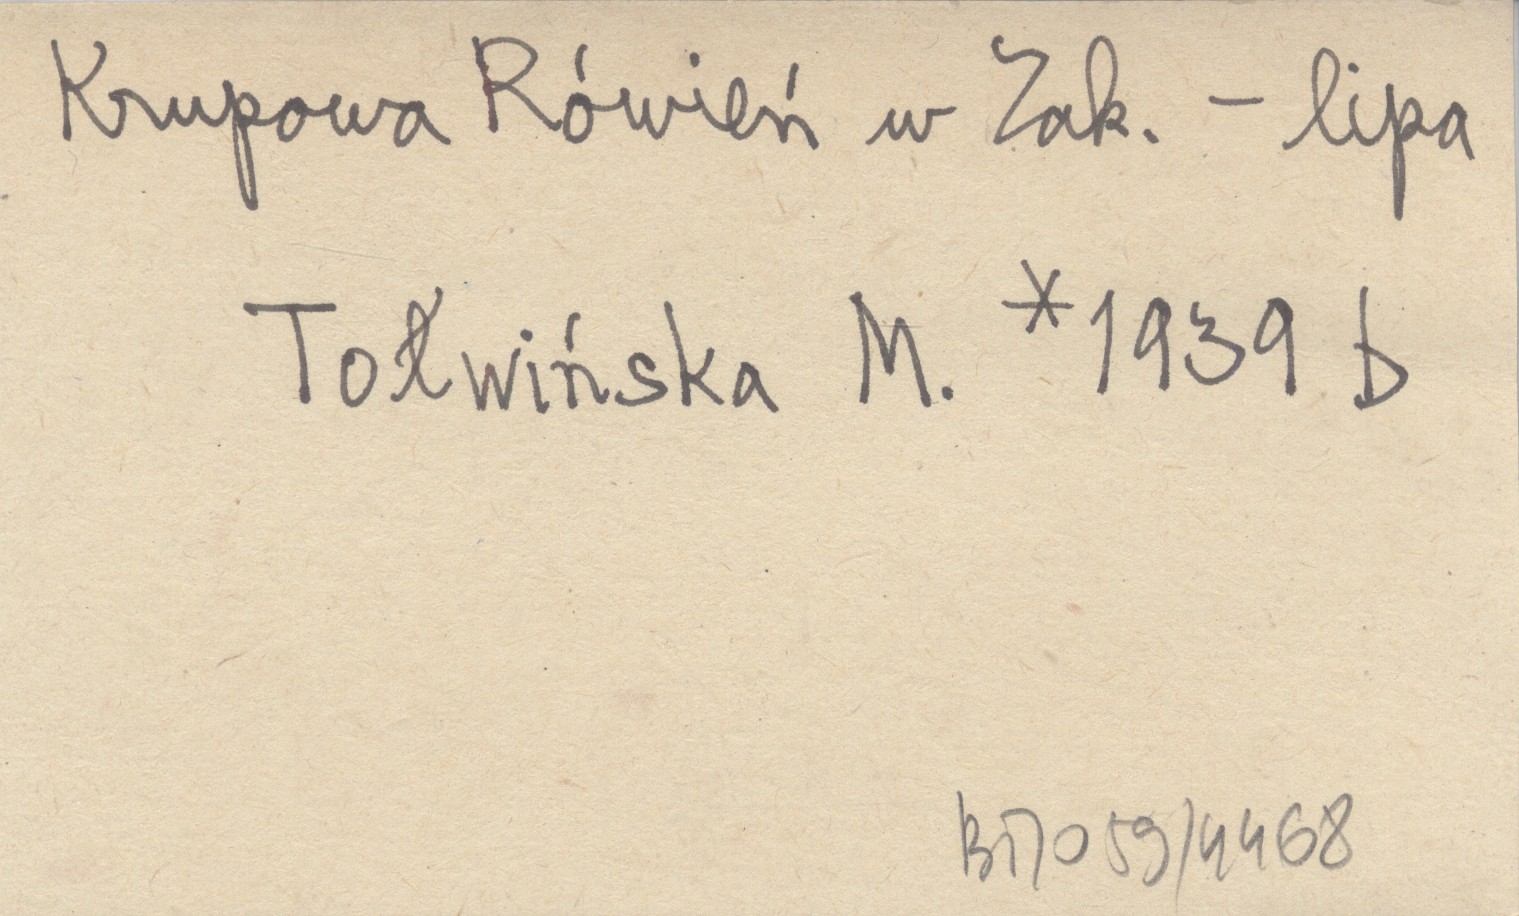 Krupowa Rówień w Zak. – lipa
Tołwińska M. *1939 b
059/4468